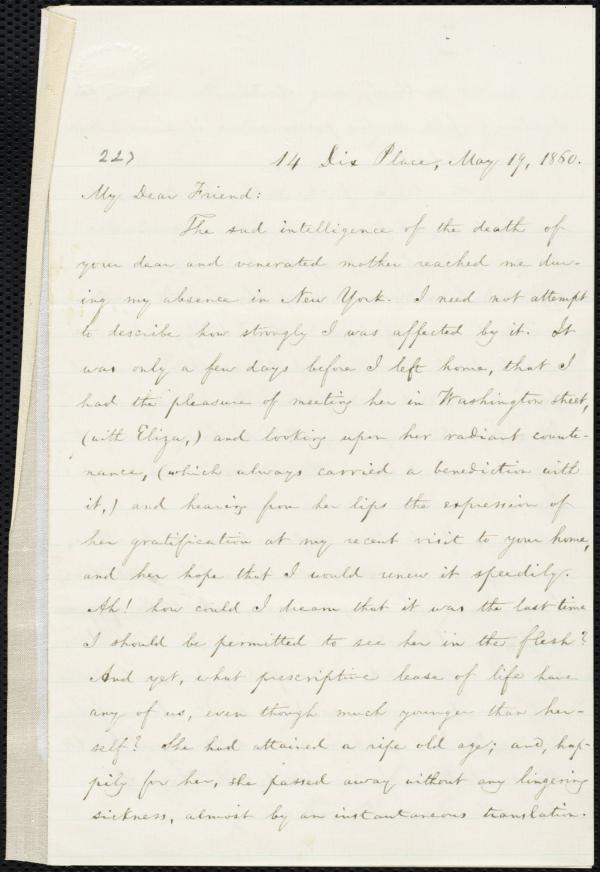 227
14 Dix Place, May 19, 1860.
My Dear Friend:
The sad intelligence of the death of
your dear and venerated mother reached me dur-
ing my absence in New York. I need not attempt
to describe how strongly I was affected by it. It
was only a few days before I left home, that I
had the pleasure of meeting her in Washington street,
(with Eliza,) and looking upon her radiant counte-
nance, (which always carried a benediction with
it,) and hearing from her lips the expression of
her gratification at my recent visit to your home,
and her hope that I would renew it speedily.
Ah! how could I dream that it was the last time
I should be permitted to see her in the flesh?
And yet, what prescriptive lease of life have
any of us, even though much younger than her-
self? She had attained a ripe old age; and, hap-
pily for her, she passed away without any lingering
sickness, almost by an instantaneous translation.